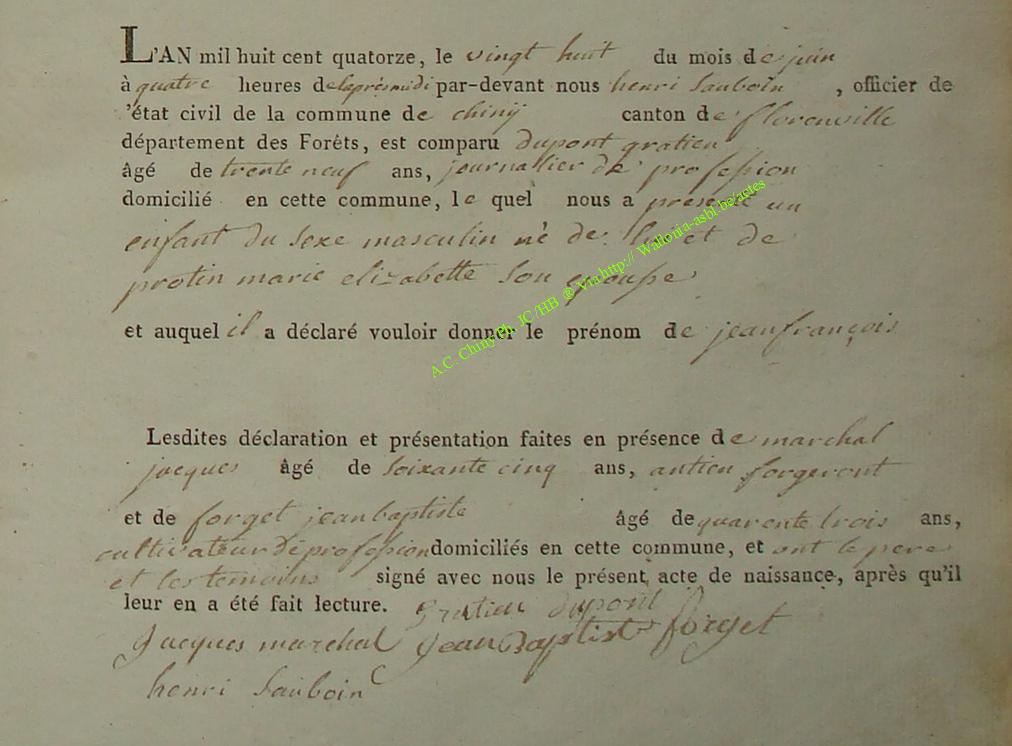 L'AN mil huit cent quatorze, le vingt huit du mois de juin
à quatre heures de laprésmidi par-devant nous henri Sauboin , officier de
'état civil de la commune de chinÿ canton de florenville
département des Forêts, est comparu dupont gratien
âgé de trente neuf ans, journallier de profession
domicilié en cette commune, le quel nous a présenté un
enfant du sexe masculin né de lui et de
protin marie elizabette son epouse
et auquel il a déclaré vouloir donner le prénom de jeanfrançois
Lesdites déclaration et présentation faites en présence de marchal
jacques âgé de soixante cinq ans, antien forgeront
et de forget jeanbaptiste âgé de quarente trois ans,
cultivateur de profession domiciliés en cette commune, et ont le pere
et les temoins signé avec nous le présent acte de naissance, après qu'il
leur en a été fait lecture. Gratien dupont
Jacques marchal Jean Baptiste forget
henri Sauboin
A.C. Chiny th. JC /HB @ Via http:// Wallonia-asbl.be/actes